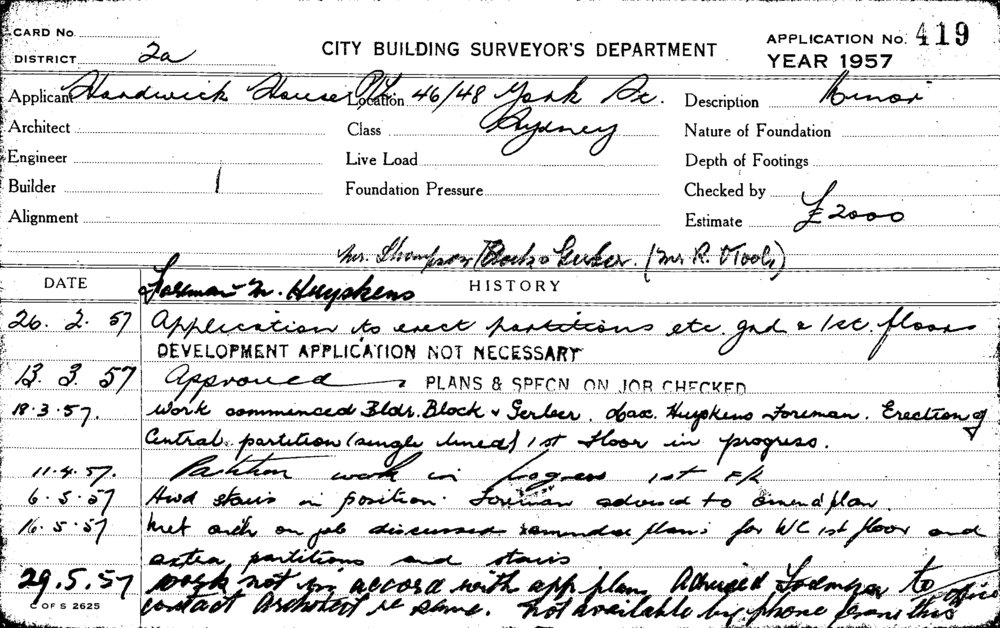 CARD No.
DISTRICT 2a
CITY BUILDING SURVEYOR'S DEPARTMENT
APPLICATION No. 419
YEAR 1957
Applicant Hardwick House P/L Location 46/48 York St. Description Minor
Architect Class Sydney Nature of Foundation
Engineer Live Load Depth of Footings
Builder Foundation Pressure Checked by
Alignment Estimate £2000
Mr. Thompson Block & Gerber. (Mr R.
DATE HISTORY
Foreman Mr. Huypkens
26. 2. 57 Application to erect partitions etc grd & 1st. floors
DEVELOPMENT APPLICATION NOT NECESSARY
13. 3. 57 Approved PLANS & SPECN ON JOB CHECKED
18.3.57. Work commenced Bldr. Block & Gerber. Huypkens Foreman. Erection of
Central partition (single lined) 1st Floor in progress.
11.4.57. Partition work in progress 1st Flr
6.5.57 Hwd stairs in position. Foreman advised to amend plan.
16.5.57 Met arch on job discussed plans for WC 1st floor and
extra partitions and stairs
29.5.57 work not in accord with app plan Advised Foreman to
contact Architect re same. Not available by phone from this office
C OF S 2625